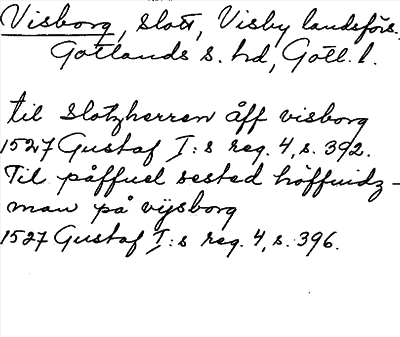 Visborg, slott, Visby landsförs.,
Gotlands s. hd, Gotl. l.
til slotzherren åff visborg
1527 Gustaf I:s reg. 4, s. 392.
Til påffuel sested höffuidz-
man på vijsborg
1527 Gustaf I:s reg. 4, s. 396.